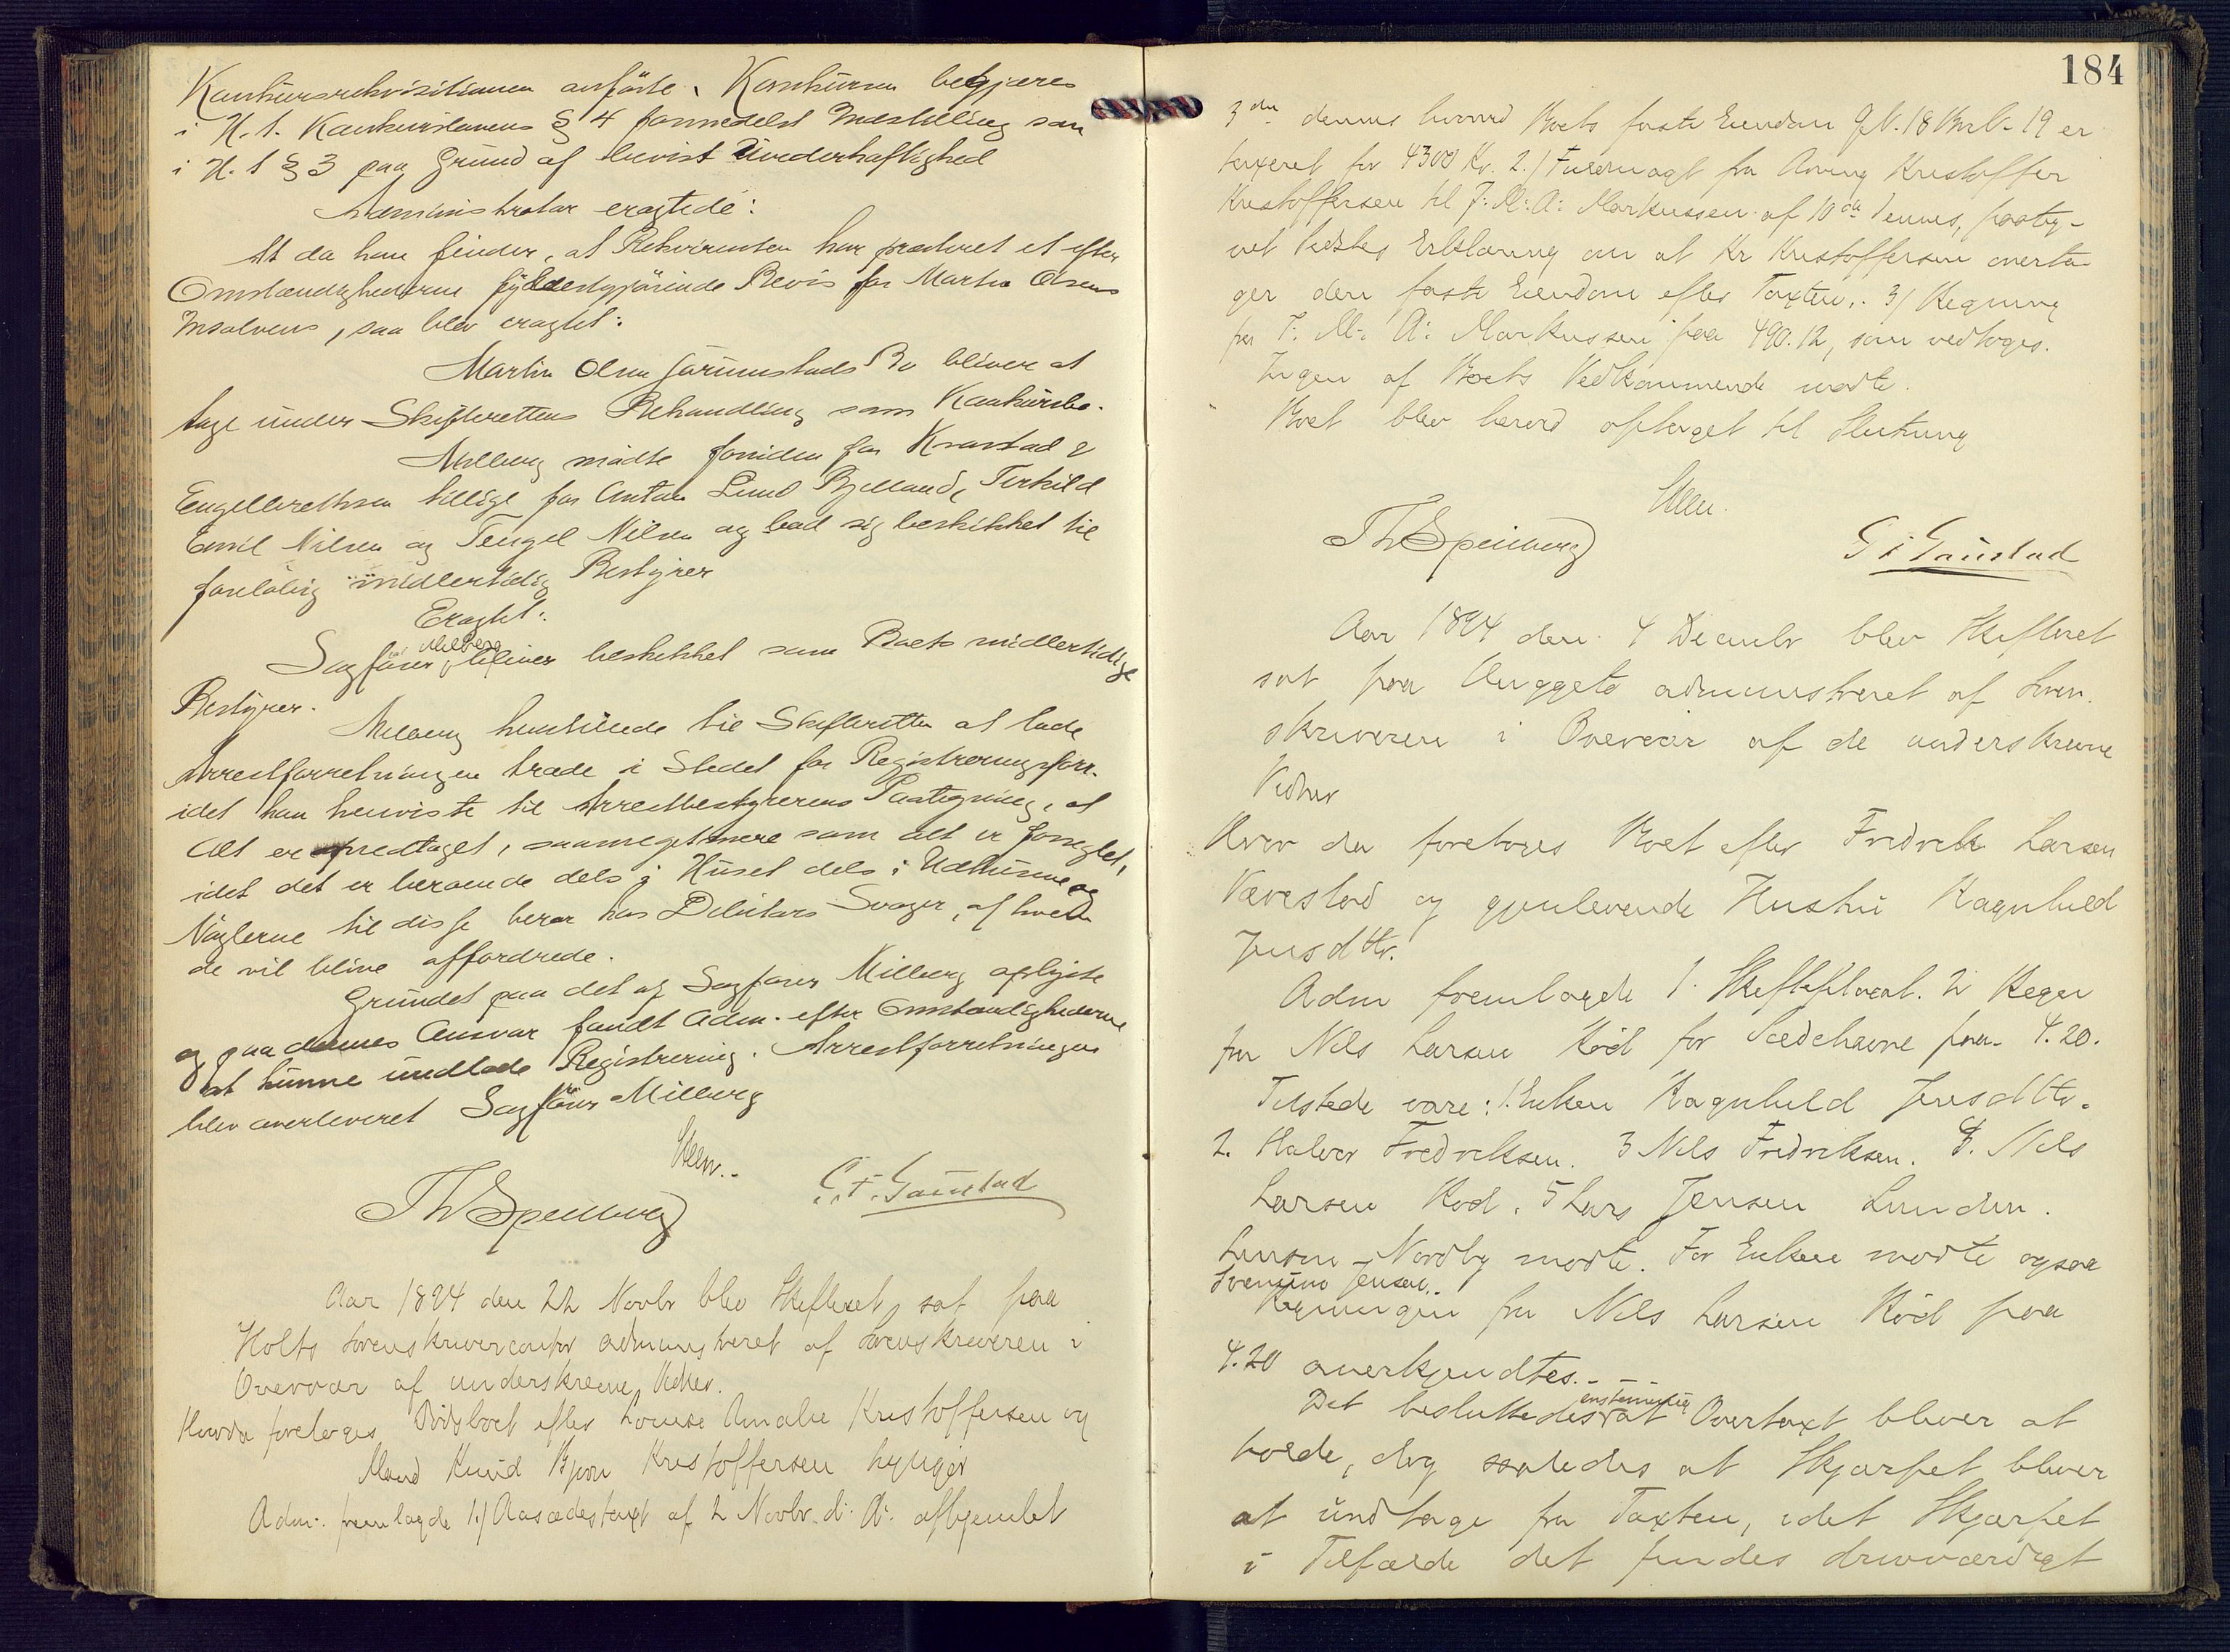 Konkursrekvisitionen anførte. Konkursen begjæres
i H. t. Konkurslovens § 4 formedelst Indstilling som
i H. t § 3 paa Grund af bevist Uvederhæftighed
Administrator eragtede:
At da han finder, at Rekvirenten har præsteret et efter
Omstændighederne fyldestgjørende Bevis for Martin Olsens
Insolvens, saa blev eragtet:
Martin Olsen Jorunnstads Bo bliver at
tage under Skifterettens Behandling som Konkursbo.
Milberg mødte foruden for Knarstad &
Engelbrethsen tillige for Anton Lund Bjelland, Terkild
Emil Nilsen og Tengel Nilsen og bad sig beskikket til
foreløbig midlertidig Bestyrer
Eragtet:
Sagfører Milberg bliver beskikket som Boets midlertidige
Bestyrer.
Milberg henstillede til Skifteretten at lade
Arrestforretningen træde i Stedet for Registreringsforr.
idet han henviste til Arrestbestyrerens Paategning, at
Alt er medtaget, saameget mere som alt er forseglet,
idet det er beroende dels i Huset dels i Udhusene og
Nøglerne til disse beror hos Debitors Svoger, af hvem
de vil blive affordrede.
Grundet paa det af Sagfører Milberg oplyste
og paa dennes Ansvar fandt Adm. efter Omstændighederne
at kunne undlade Registrering. Arrestforretningen
blev overleveret Sagfører Milberg
Th Spenberg
G. T. Gaustad
Aar 1894 den 22 Novbr blev Skifteret sat paa
Holts Sorenskrivercontor administreret af Sorenskriveren i
Overvær af underskrevne Vidner.
Hvorda foretoges Dødsboet efter Lovise Amalie Kristoffersen og
Mand Knud Bjørn Kristoffersen
Adm: fremlagde 1) Aasædestaxt af 2 Novbr d: A: afhjemlet
184
3die dennes hvorved Boets faste Eiendom G N. 18 Br N. 19 er
taxeret for 4300 Kr. 2.) Fuldmagt fra Kristoffer
Kristoffersen til J. M. A. Markussen af 10de dennes, paateg-
net Sidstes Erklæring om at Kr Kristoffersen overta
ger den faste Eiendom efter Taxten. 3) Regning
fra J. M. A. Markussen paa 490.12, som vedtoges.
Ingen af Boets Vedkommende mødte.
Boet blev herved optaget til Slutning
Th Spenberg
G T Gaustad
Aar 1894 den 4 Decembr blev Skifteret
sat paa Anggets administreret af Soren
skriveren i Overvær af de underskrevne
Vidner
Hvor da foretoges Boet efter Fredrik Larsen
Vævestad og gjenlevende Hustru Ragnhild
Jensdttr.
Adm fremlagde 1. 2 Regn
fra Nils Larsen Kød for Sædehavre paa 4.20.
Tilstede vare: 1. Enken Ragnhild Jensdttr.
2. Halvor Fredriksen. 3 Nils Fredriksen. 4. Nils
Larsen Kød. 5 Lars Jensen Lunden.
Nordby mødte. For Enken mødte ogsaa
Jensen.
Regningen fra Nils Larsen Kød paa
4.20 anerkjendtes. - - -
Det besluttedes enstemmig at Overtaxt bliver at
holde, dog saaledes at Skjærpet bliver
at undtage fra Taxten, idet Skjærpet
i Tilfælde det findes drivværdigt